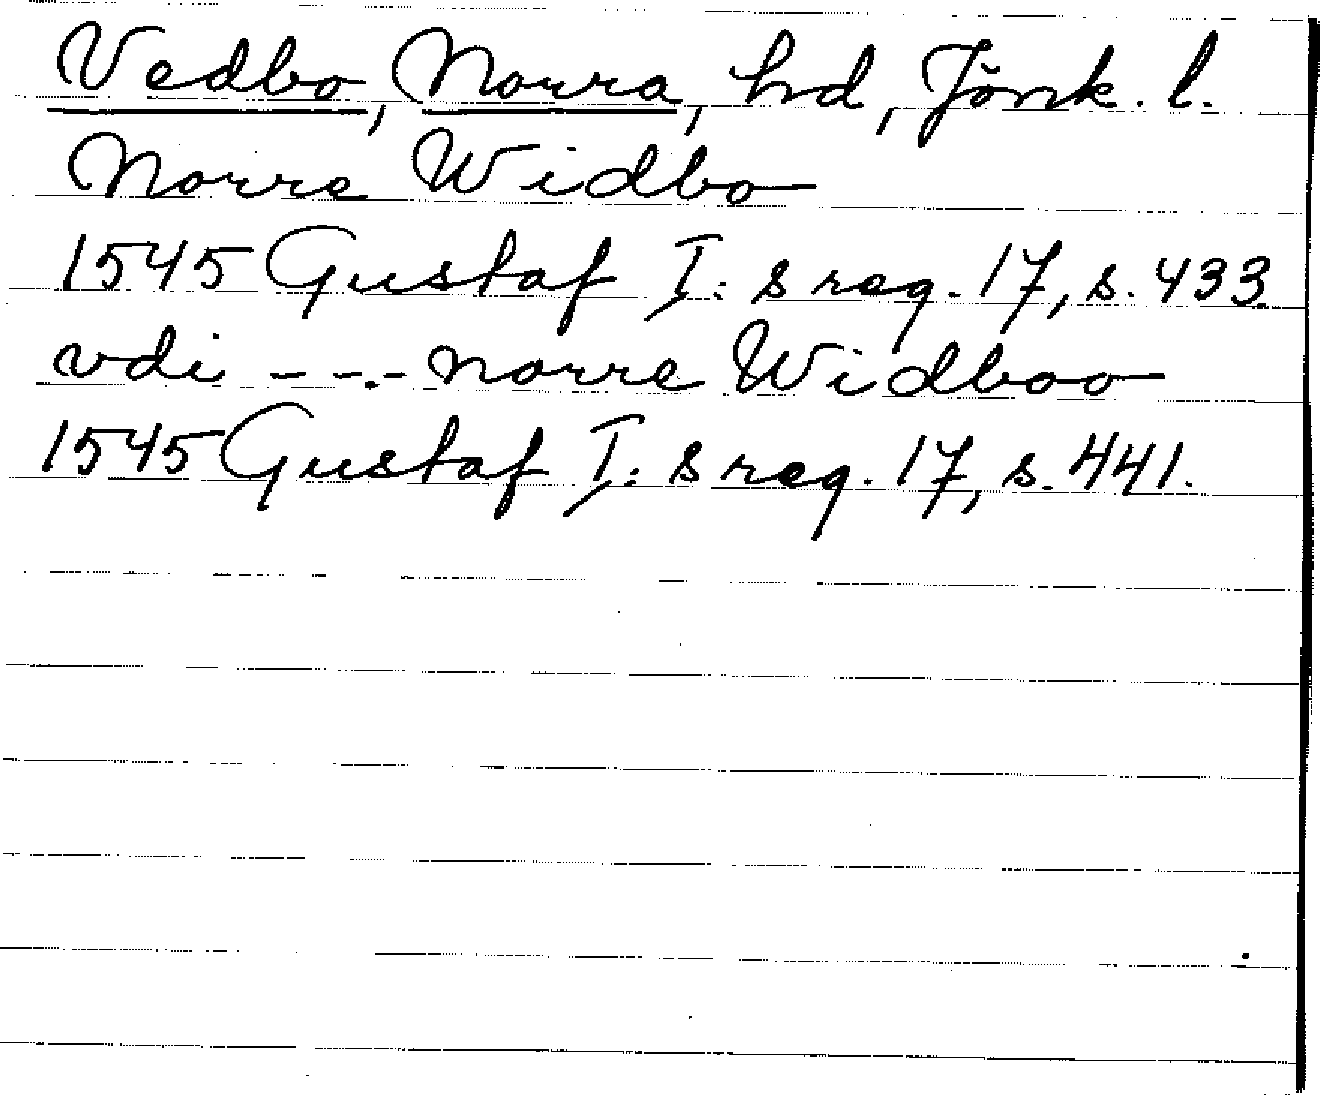 Vedbo, Norra, hd, Jönk. l.
Norre Widbo
1545 Gustaf I: s reg. 17, s. 433
vdi - - - norre Widboo
1545 Gustaf I: s reg. 17, s. 441.